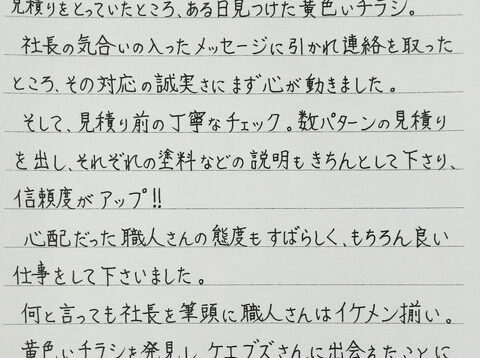 見積りをとっていたところ、ある日見つけた黄色いチラシ。
社長の気合いの入ったメッセージに引かれ連絡を取った
ところ、その対応の誠実さにまず心が動きました。
そして、見積り前の丁寧なチェック。数パターンの見積り
を出し、それぞれの塗料などの説明もきちんとして下さり、
信頼度がアップ!!
心配だった職人さんの態度もすばらしく、もちろん良い
仕事をして下さいました。
何と言っても社長を筆頭に職人さんはイケメン揃い。
黄色いチラシを発見し、ケエブズさんに出会えたことに